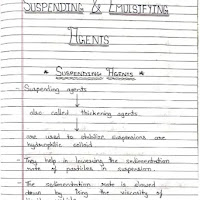 SUSPENDING & EMULSIFYING
AGENTS
* SUSPENDING AGENTS *
- Suspending agents
↓
also called thickening agents
↓
are used to stabilise suspensions are
hydrophilic colloid
- They help in lowering the sedimentation
rate of particles in suspension.
- The sedimentation rate is slowed
down by rising the viscosity of